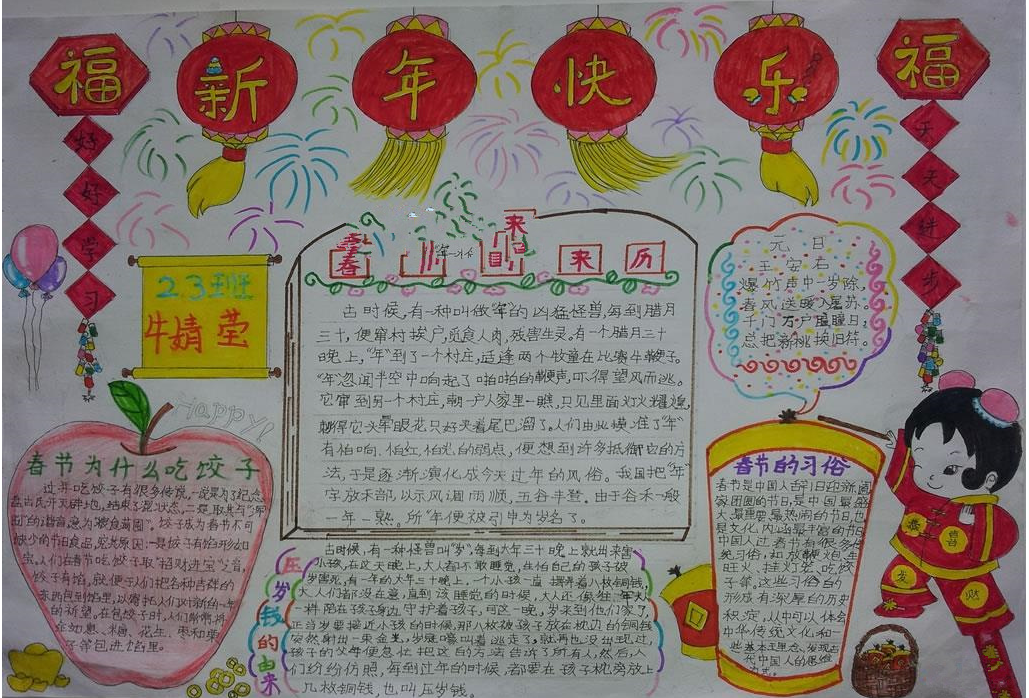 福
新
年
快
乐
福
好
好
学
习
天
天
进
步
2.3班
牛婧莹
Happy!
春节
来历
古时候，有一种叫做“年”的凶猛怪兽，每到腊月
三十，便窜村挨户，觅食人肉，残害生灵。有一个腊月三十
晚上，“年”到了一个村庄，适逢两个牧童在比赛牛鞭子。
“年”忽闻半空中响起了啪啪的鞭声，吓得望风而逃。
它窜到另一个村庄，朝一户人家里一瞧，只见里面灯火耀煌，
刺得它头晕眼花只好夹着尾巴溜了。人们由此摸准了“年”
有怕响，怕红，怕光的弱点，便想到许多抵御它的方
法，于是逐渐演化成今天过年的风俗。我国把“年”
字放禾部，以示风调雨顺，五谷丰登。由于谷禾一般
一年一熟。所“年便被引申为岁名了。
元日
王安石
爆竹声中一岁除，
春风送暖入屠苏。
千门万户曈曈日，
总把新桃换旧符。
春节为什么吃饺子
过年吃饺子有很多传说，一说是为了纪念
盘古氏开天辟地，结束了混状态，二是取其与
的谐音，意为“粮食满囤”。饺子成为春节不可
缺少的节日食品，究其原因：一是饺子有馅形如
宝。人们在春节吃饺子取“招财进宝”之音，
饺子有馅，就便于人们把各种吉祥的
东西包到馅里，以寄托人们对新的一年
的祈望。在包饺子时，人们常常将
金如意、糖、花生、枣和栗
子等包进馅里。
压岁钱的由来
古时候，有一种怪兽叫“岁”，每到大年三十晚上就出来害
小孩，在这天晚上，大人都不敢睡觉，生怕自己的孩子被
岁害死，有一年的大年三十晚上，一个小孩一直摆弄着八枚铜钱，
大人们都没在意，直到该睡觉的时候，大人还像往年
一样陪在孩子身边守护着孩子，可这一晚，岁来到他们家了，
正当岁要接近小孩的时候，那八枚被孩子放在枕边的铜钱
突然射出一束金光，岁嚎叫着逃走了，就再也没出现过，
孩子的父母便急忙把这的方法告诉了所有人，然后，人
们纷纷仿照，每到过年的时候，都要在孩子枕旁放上
几枚铜钱，也叫压岁钱。
春节的习俗
春节是中国人合
家团圆的节日，是中国最盛
大、最重要、最热闹的节日，也
是文化内涵最丰富的节日
中国人过春节有很多传
统习俗，如放鞭炮、走
旺火、挂灯笼、吃饺
子等，这些习俗的
形成有深厚的历史
积淀，从中可以体会
中华传统文化和一
些基本理念，发现古
代中国人的思维
方式。
恭
喜
发
财